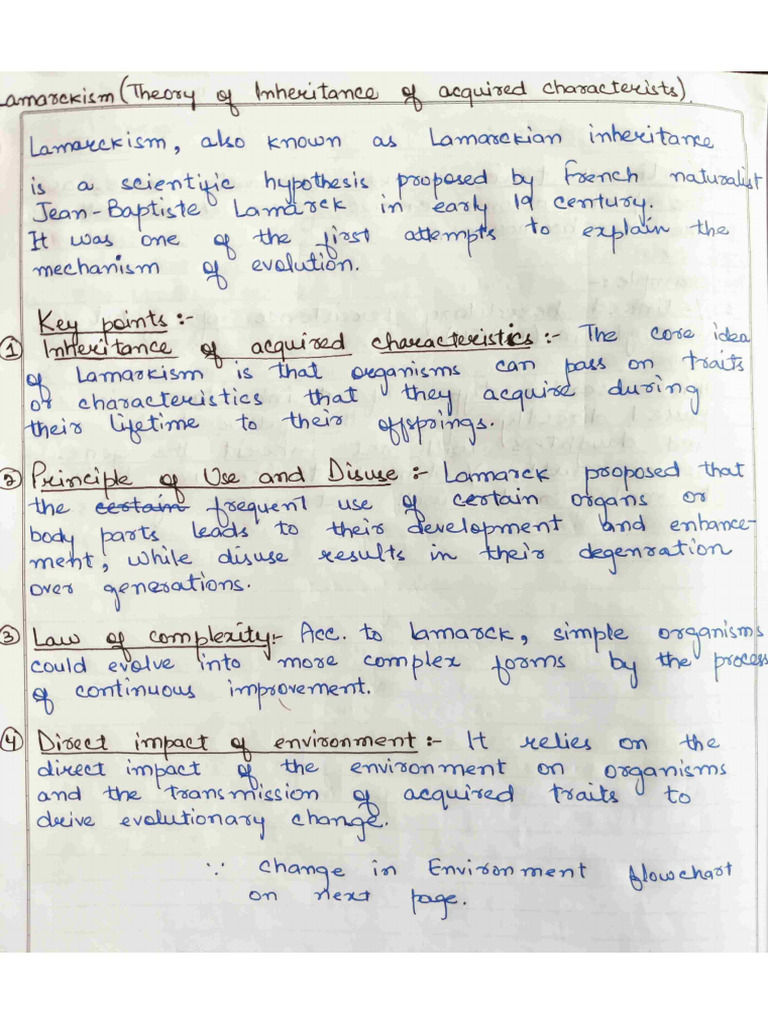 Lamarckism (Theory of Inheritance of acquired characterists).
Lamarckism, also known as Lamarckian inheritance
is a scientific hypothesis proposed by french naturalist
Jean-Baptiste Lamarck in early 19 century.
It was one of the first attempts to explain the
mechanism of evolution.
Key points :-
① Inheritance of acquired characteristics :- The core idea
of Lamarkism is that organisms can pass on traits
or characteristics that they acquire during
their lifetime to their offsprings.
② Principle of Use and Disuse :- Lamarck proposed that
the certain frequent use of certain organs or
body parts leads to their development and enhance-
ment, while disuse results in their degenration
over generations.
③ Law of complexity:- Acc. to lamarck, simple organisms
could evolve into more complex forms by the process
of continuous improvement.
④ Direct impact of environment :- It relies on the
direct impact of the environment on organisms
and the transmission of acquired traits to
drive evolutionary change.
∵ change in Environment flowchart
on next page.